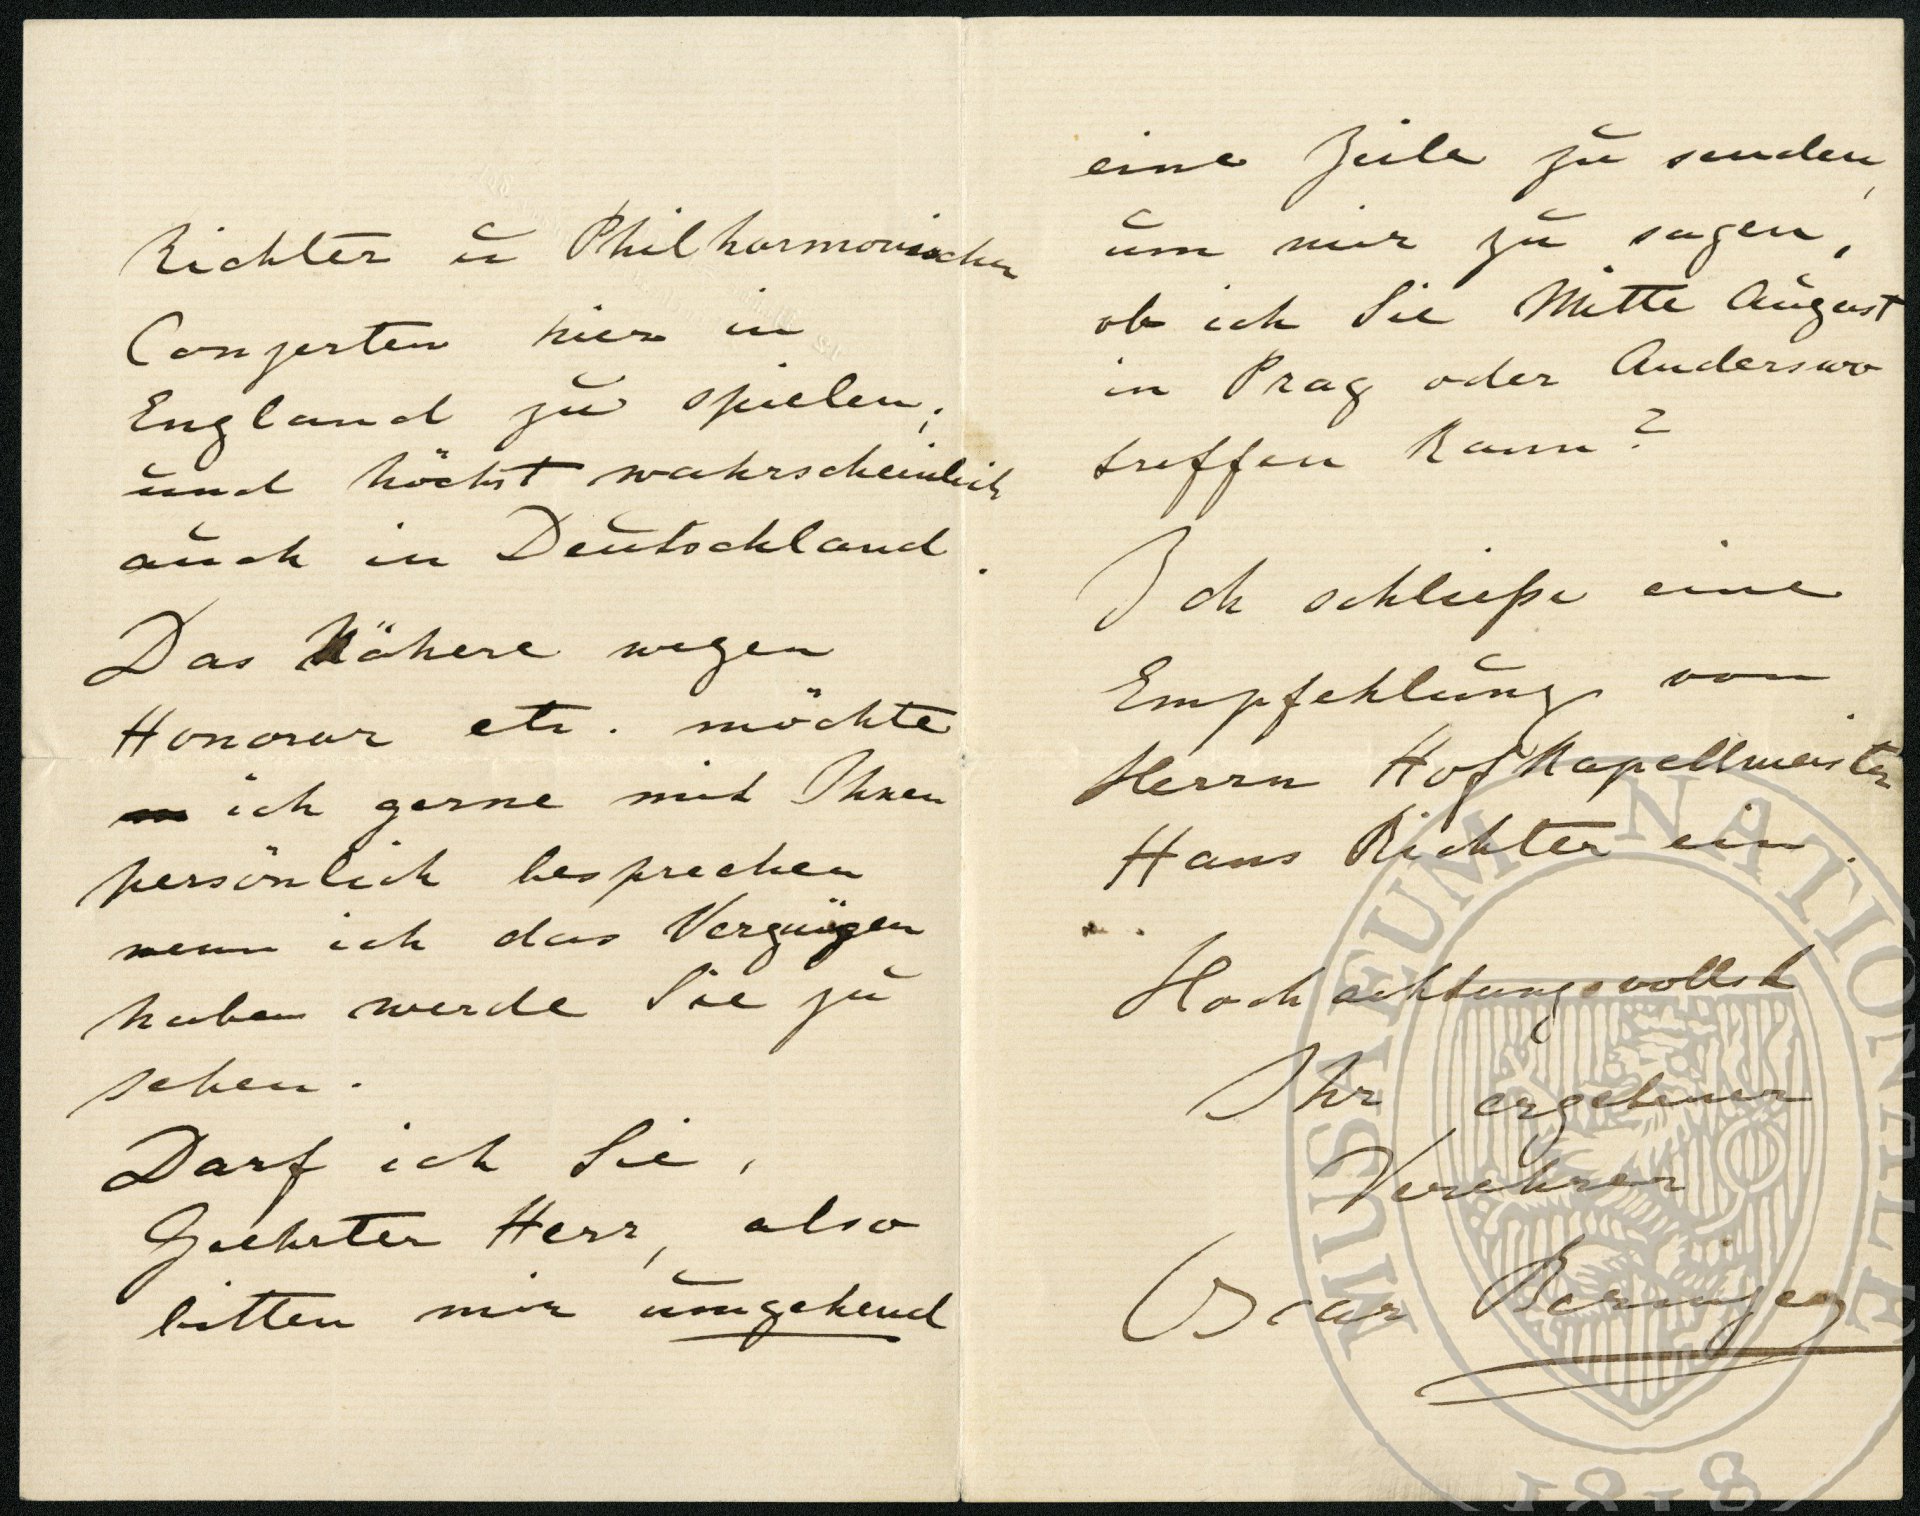 Richter u Philharmonischen
Conzerten hier in
England zu spielen,
und höchst wahrscheinlich
auch in Deutschland.
Das Nähere wegen
Honorar etc. möchte
ich gerne mit Ihnen
persönlich besprechen
wenn ich das Vergnügen
haben werde Sie zu
sehen.
Darf ich Sie,
Geehrter Herr, also
bitten mir umgehend
eine Zeile zu senden,
um mir zu sagen,
ob ich Sie Mitte August
in Prag oder Anderswo
treffen kann?
Ich schließe eine
Empfehlung von
Herrn Hof Kapellmeister
Hans Richter ein.
Hochachtungsvollst
Ihr ergebener
Verehrer
Oscar Beringer
MUSAEUM NATIONALE
1818